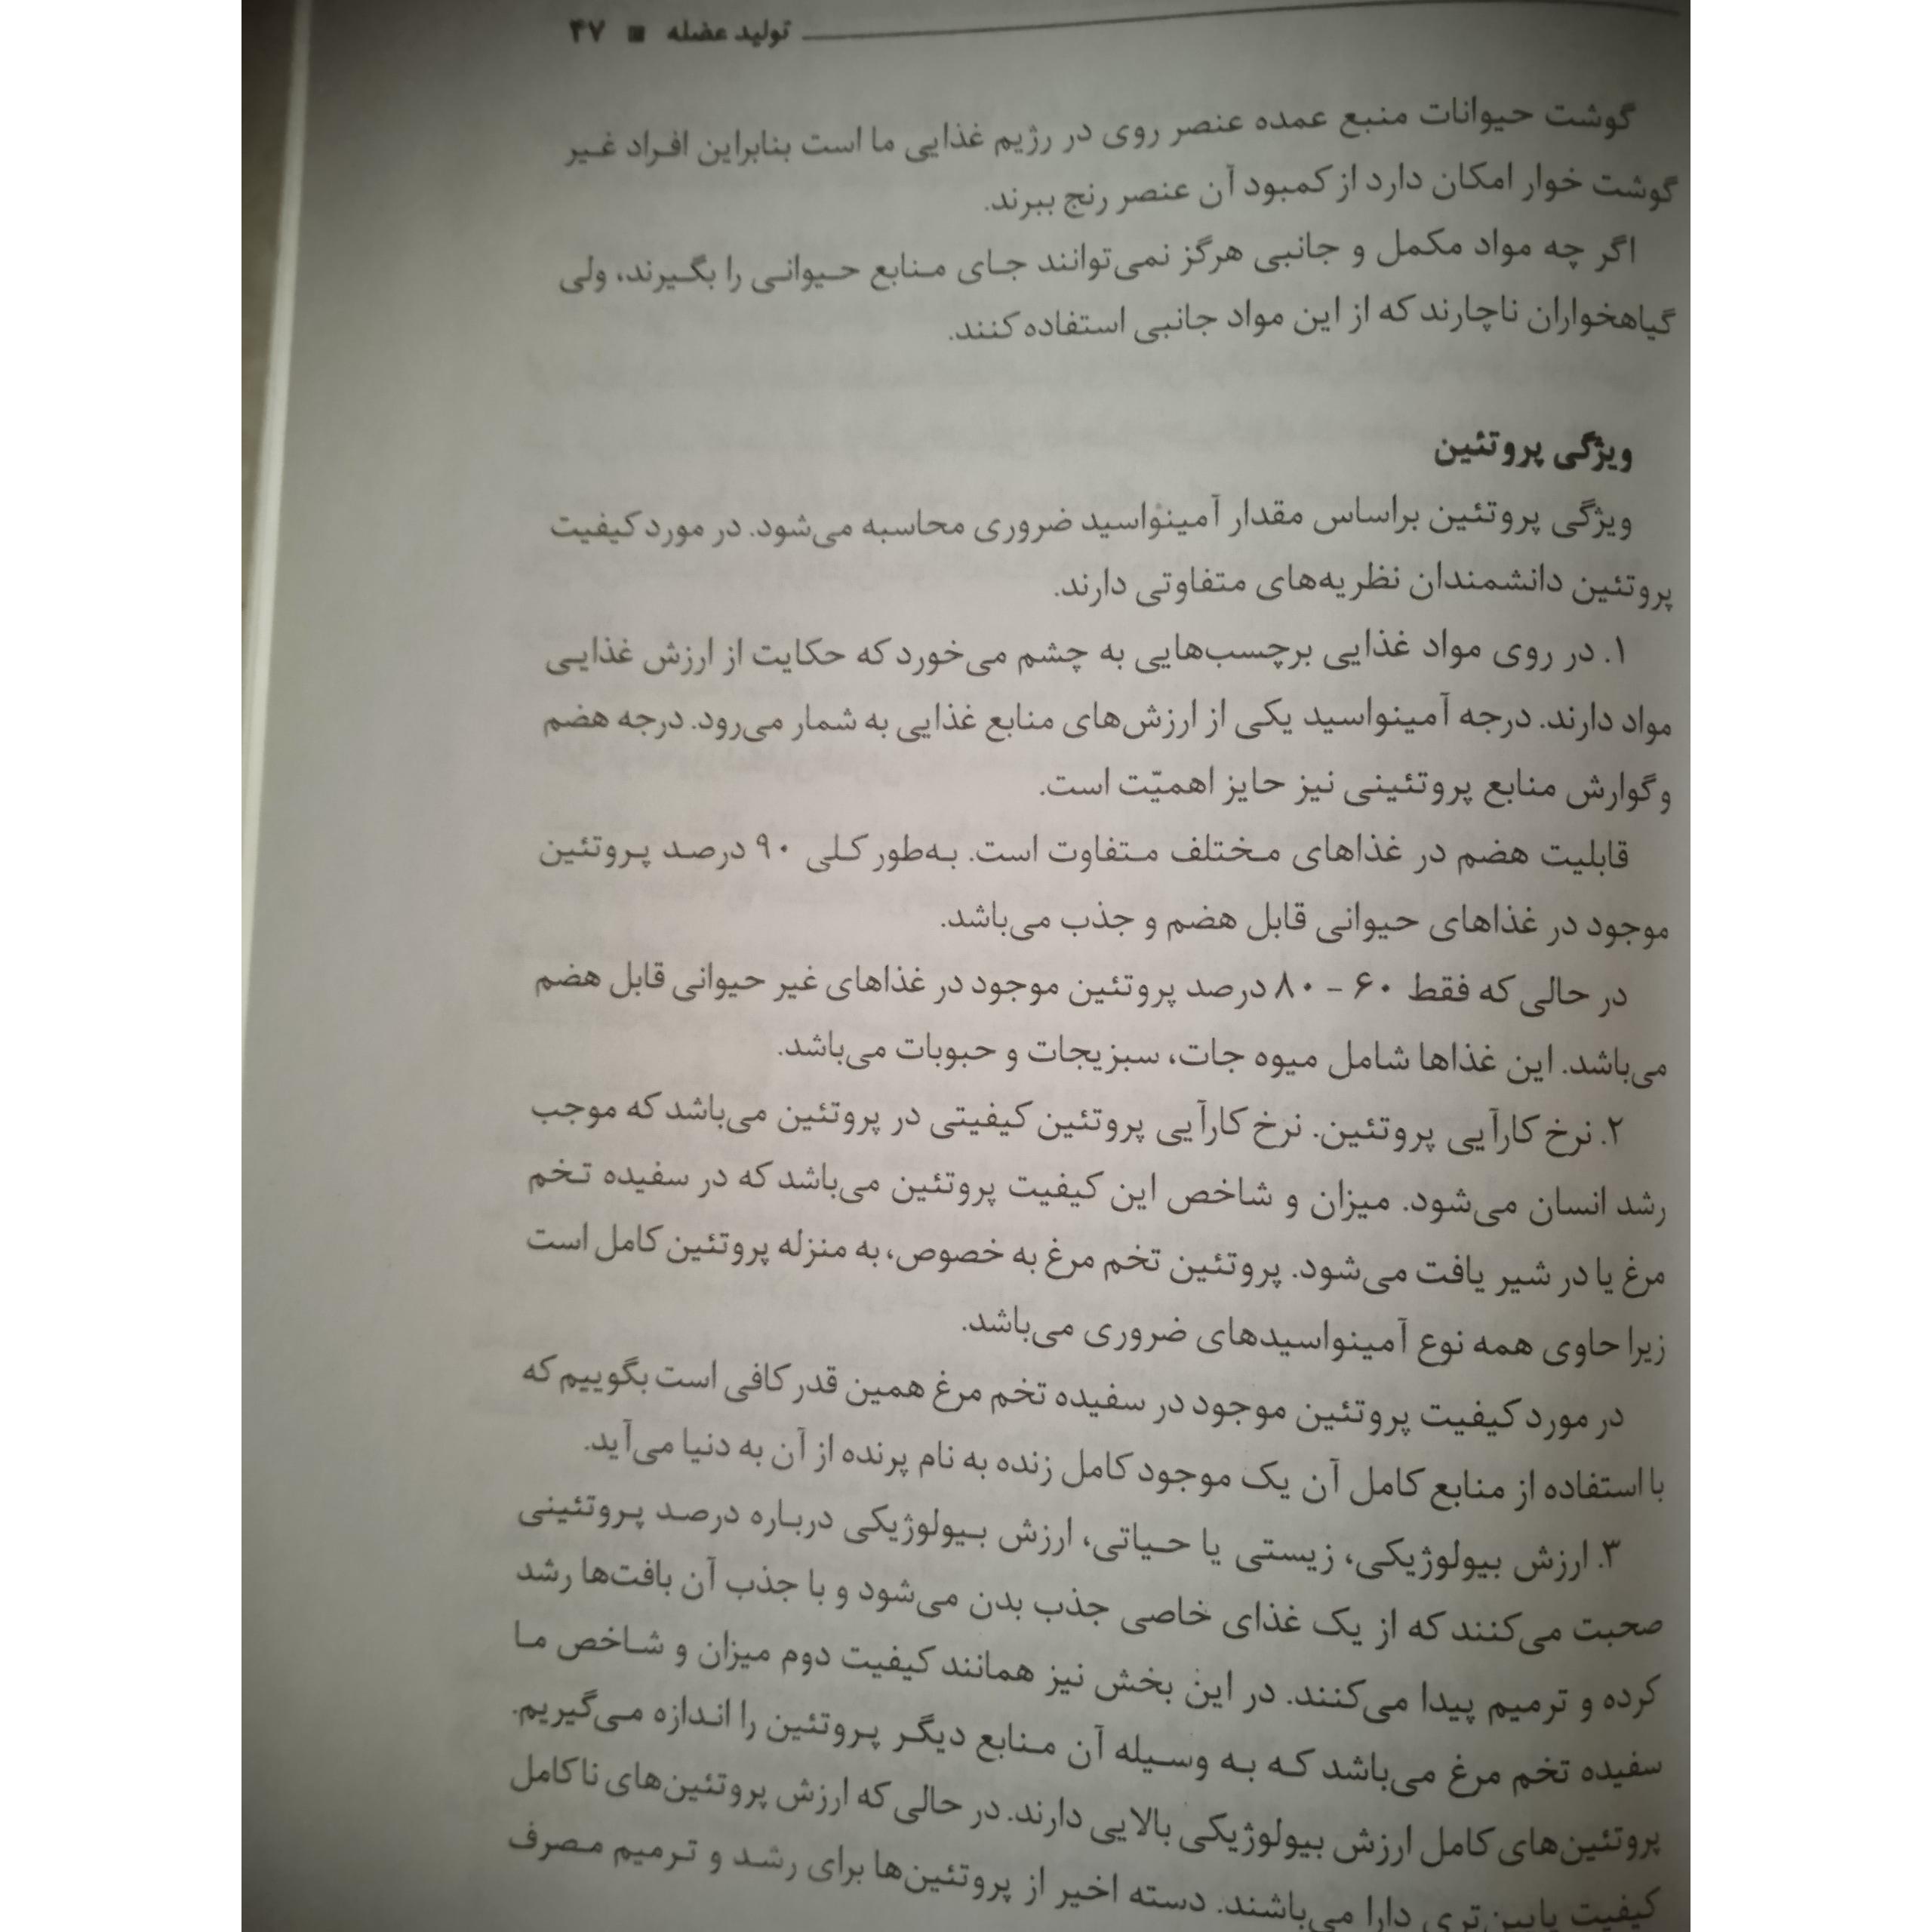 تولید عضله ■ ۴۷
گوشت حیوانات منبع عمده عنصر روی در رژیم غذایی ما است بنابراین افراد غیر
گوشت خوار امکان دارد از کمبود آن عنصر رنج ببرند.
اگر چه مواد مکمل و جانبی هرگز نمی‌توانند جای منابع حیوانی را بگیرند، ولی
گیاهخواران ناچارند که از این مواد جانبی استفاده کنند.
ویژگی پروتئین
ویژگی پروتئین براساس مقدار آمینواسید ضروری محاسبه می‌شود. در مورد کیفیت
پروتئین دانشمندان نظریه‌های متفاوتی دارند.
۱. در روی مواد غذایی برچسب‌هایی به چشم می‌خورد که حکایت از ارزش غذایی
مواد دارند. درجه آمینواسید یکی از ارزش‌های منابع غذایی به شمار می‌رود. درجه هضم
و گوارش منابع پروتئینی نیز حایز اهمیّت است.
قابلیت هضم در غذاهای مختلف متفاوت است. به‌طور کلی ۹۰ درصد پروتئین
موجود در غذاهای حیوانی قابل هضم و جذب می‌باشد.
در حالی که فقط ۶۰ - ۸۰ درصد پروتئین موجود در غذاهای غیر حیوانی قابل هضم
می‌باشد. این غذاها شامل میوه جات، سبزیجات و حبوبات می‌باشد.
۲. نرخ کارآیی پروتئین. نرخ کارآیی پروتئین کیفیتی در پروتئین می‌باشد که موجب
رشد انسان می‌شود. میزان و شاخص این کیفیت پروتئین می‌باشد که در سفیده تخم
مرغ یا در شیر یافت می‌شود. پروتئین تخم مرغ به خصوص، به منزله پروتئین کامل است
زیرا حاوی همه نوع آمینواسیدهای ضروری می‌باشد.
در مورد کیفیت پروتئین موجود در سفیده تخم مرغ همین قدر کافی است بگوییم که
با استفاده از منابع کامل آن یک موجود کامل زنده به نام پرنده از آن به دنیا می‌آید.
۳. ارزش بیولوژیکی، زیستی یا حیاتی، ارزش بیولوژیکی درباره درصد پروتئینی
صحبت می‌کنند که از یک غذای خاصی جذب بدن می‌شود و با جذب آن بافت‌ها رشد
کرده و ترمیم پیدا می‌کنند. در این بخش نیز همانند کیفیت دوم میزان و شاخص ما
سفیده تخم مرغ می‌باشد که به وسیله آن منابع دیگر پروتئین را اندازه می‌گیریم.
پروتئین‌های کامل ارزش بیولوژیکی بالایی دارند. در حالی که ارزش پروتئین‌های ناکامل
کیفیت پایین‌تری دارا می‌باشند. دسته اخیر از پروتئین‌ها برای رشد و ترمیم مصرف